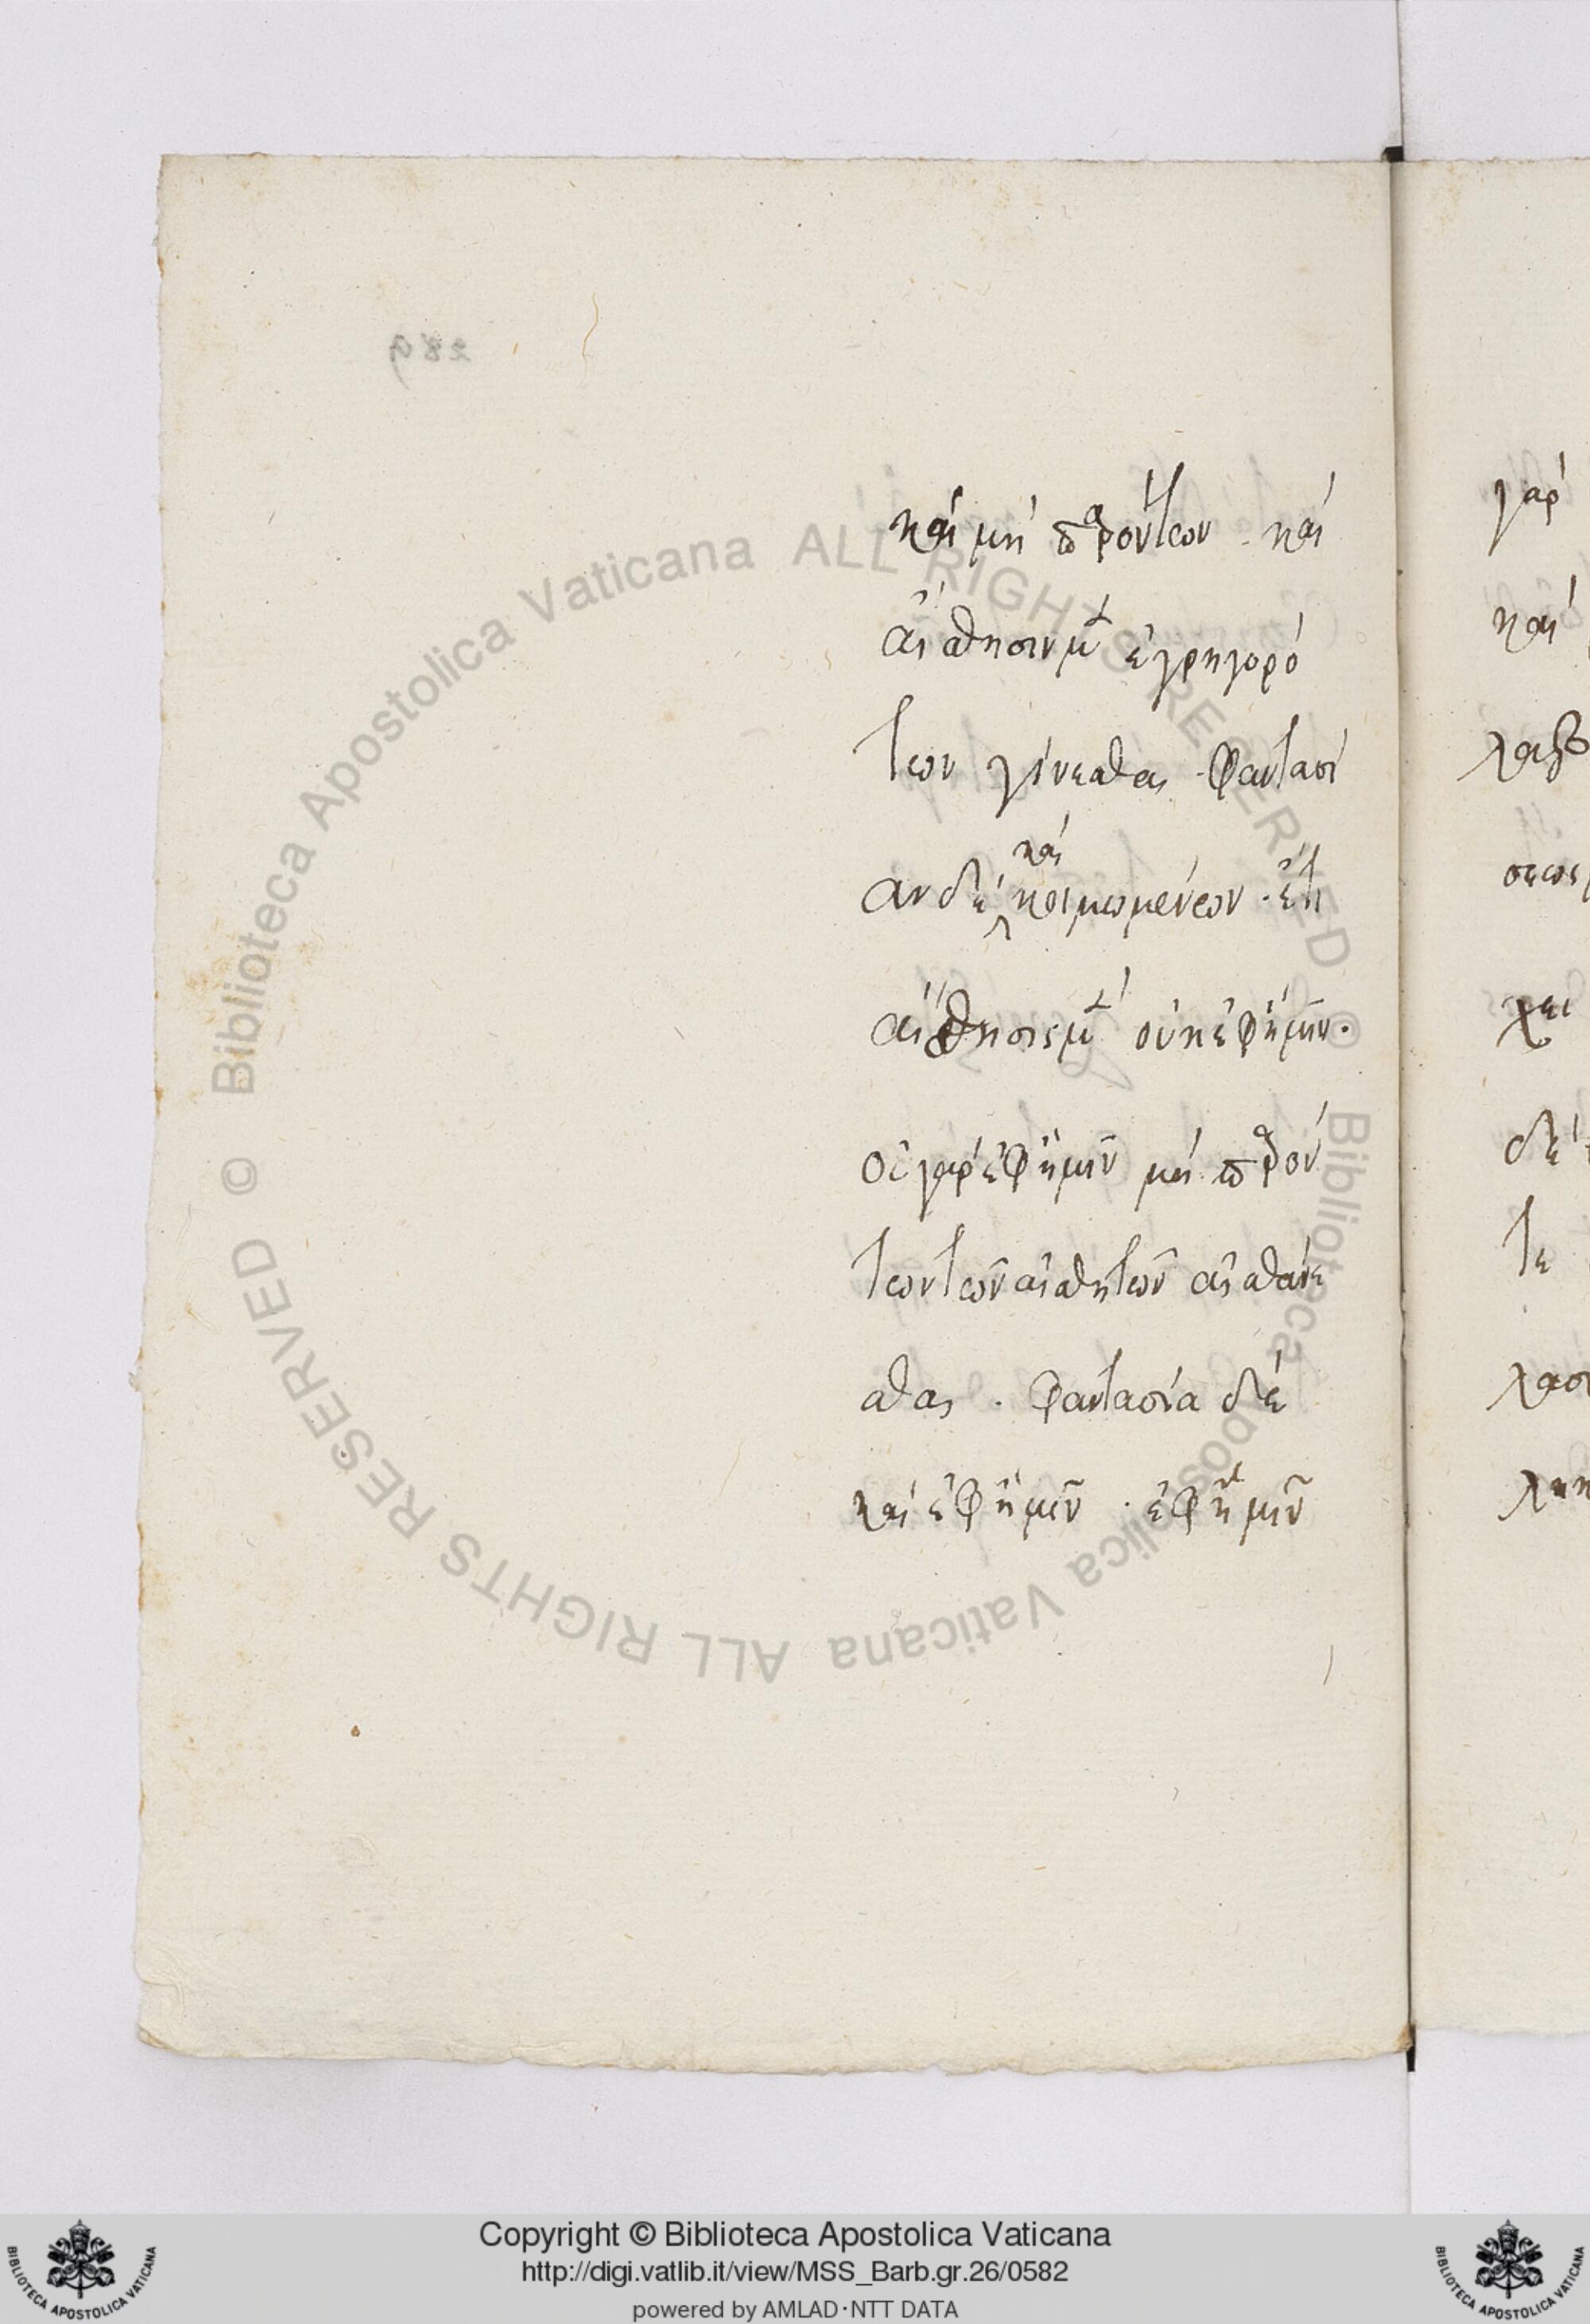 289
καὶ μὴ παρόντων · καὶ
αἴσθησιν μὲν ἐγρηγορό
των γίνεσθαι · φαντασί
αν δὲ καὶ κοιμωμένων · ἔτι
αἴσθησις μὲν οὐκ ἐφ ἡμῖν ·
οὐ γὰρ ἐφ ἡμῖν μὴ παρόν
των τῶν αἰσθητῶν αἰσθάνε
σθαι · φαντασία δὲ
καὶ ἐφ ἡμῖν · ἐφ ἡμῖν
γὰρ
καὶ
δὲ
τε
© Biblioteca Apostolica Vaticana ALL RIGHTS RESERVED © Biblioteca Apostolica Vaticana ALL RIGHTS RESERVED
Copyright © Biblioteca Apostolica Vaticana
http://digi.vatlib.it/view/MSS_Barb.gr.26/0582
powered by AMLAD·NTT DATA
BIBLIOTECA APOSTOLICA VATICANA
BIBLIOTECA APOSTOLICA VATICANA